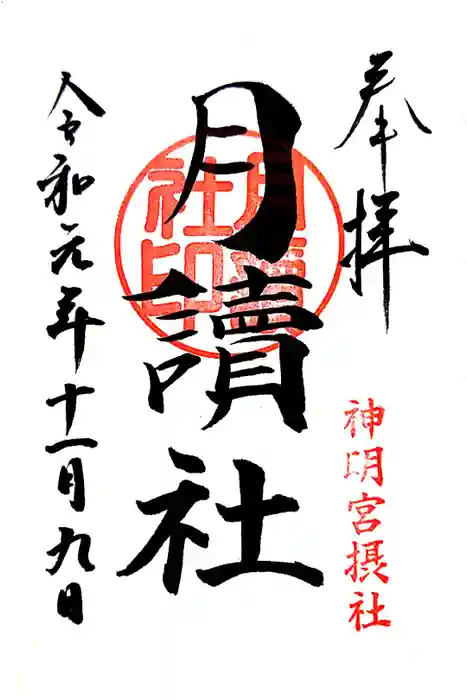 奉拝
神明宮摂社
月讀社
月讀社印
令和元年十一月九日